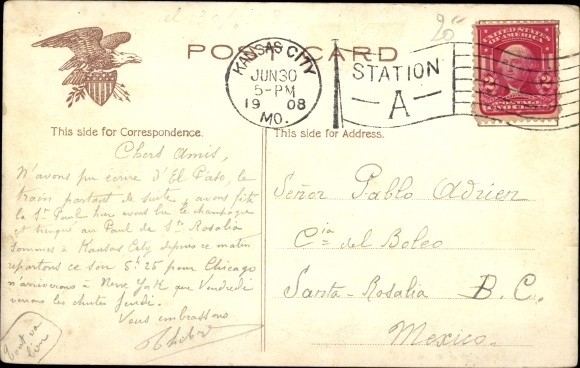 POST CARD
KANSAS CITY
JUN 30
5-PM
1908
MO.
STATION
A
UNITED STATES OF AMERICA
2 2
POSTAGE
TWO CENTS
This side for Correspondence.
Chers Amis,
N'avons pu écrire d'El Paso, le
train partant de suite, avons fêté
la St Paul hier avons bu le champagne
et trinqué au Paul de Sta Rosalia
Sommes à Kansas City depuis ce matin
repartons ce soir 5h 25 pour Chicago
n'arriverons à New York que Vendredi
verrons les chutes jeudi.
Vous embrassons
Tout va
bien
This side for Address.
Señor Pablo Adrien
Cia del Boleo
Santa-Rosalia B.C.
Mexico.